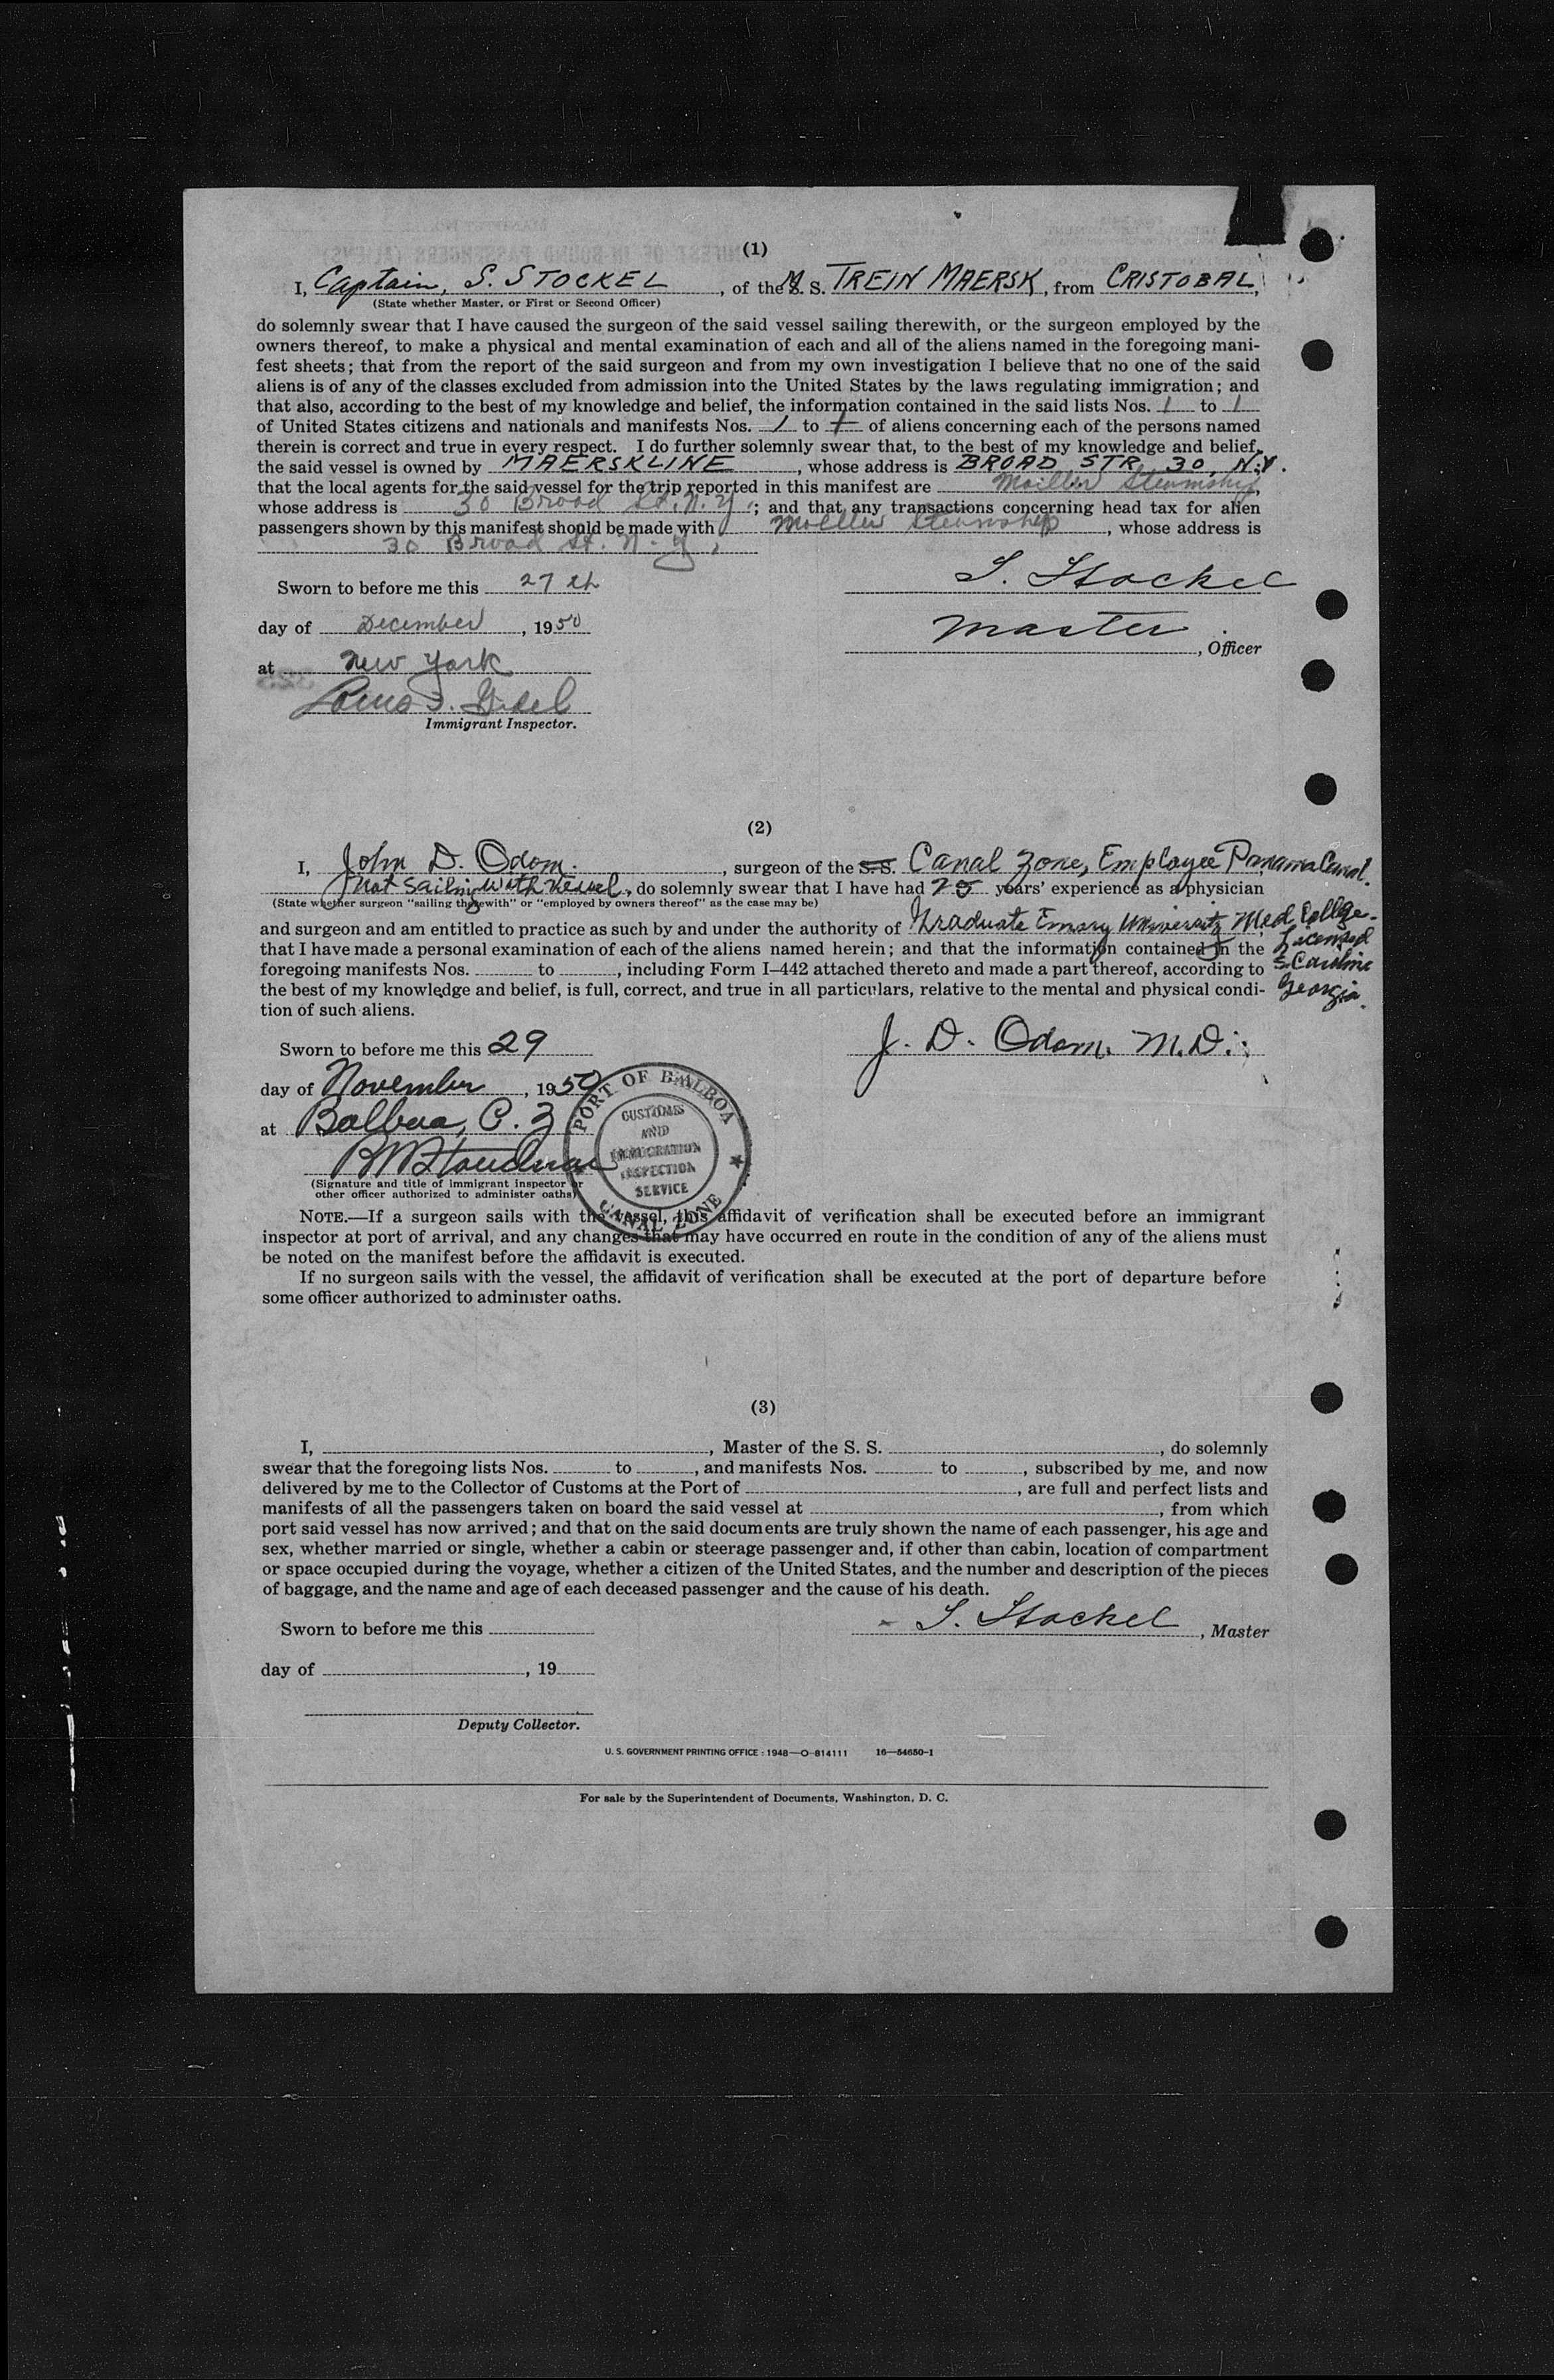 (1)
I, Captain, S. STOCKEL, of the M. S. TREIN MAERSK, from CRISTOBAL,
(State whether Master, or First or Second Officer)
do solemnly swear that I have caused the surgeon of the said vessel sailing therewith, or the surgeon employed by the
owners thereof, to make a physical and mental examination of each and all of the aliens named in the foregoing mani-
fest sheets; that from the report of the said surgeon and from my own investigation I believe that no one of the said
aliens is of any of the classes excluded from admission into the United States by the laws regulating immigration; and
that also, according to the best of my knowledge and belief, the information contained in the said lists Nos. 1 to 1
of United States citizens and nationals and manifests Nos. 1 to 1 of aliens concerning each of the persons named
therein is correct and true in every respect. I do further solemnly swear that, to the best of my knowledge and belief,
the said vessel is owned by MAERSKLINE, whose address is BROAD STR 30, N.Y.
that the local agents for the said vessel for the trip reported in this manifest are Moller Steamship,
whose address is 30 Broad St. N.Y.; and that any transactions concerning head tax for alien
passengers shown by this manifest should be made with Moller Steamship, whose address is
30 Broad St. N.Y.,
Sworn to before me this 27th
S. Stockel
day of December, 1950
Master, Officer
at New York
Immigrant Inspector.
(2)
I, John D. Odom., surgeon of the S.S. Canal Zone, Employee Panama Canal.
Not Sailing with Vessel, do solemnly swear that I have had 25 years' experience as a physician
(State whether surgeon "sailing therewith" or "employed by owners thereof" as the case may be)
and surgeon and am entitled to practice as such by and under the authority of Graduate Emory University Med. College.
Licensed
S. Carolina
Georgia.
that I have made a personal examination of each of the aliens named herein; and that the information contained in the
foregoing manifests Nos. to, including Form I–442 attached thereto and made a part thereof, according to
the best of my knowledge and belief, is full, correct, and true in all particulars, relative to the mental and physical condi-
tion of such aliens.
Sworn to before me this 29
J. D. Odom. M.D.
day of November, 1950
at Balboa, C. Z
PORT OF BALBOA
CUSTOMS
AND
IMMIGRATION
INSPECTION
SERVICE
CANAL ZONE
(Signature and title of immigrant inspector or
other officer authorized to administer oaths)
NOTE.—If a surgeon sails with the vessel, this affidavit of verification shall be executed before an immigrant
inspector at port of arrival, and any changes that may have occurred en route in the condition of any of the aliens must
be noted on the manifest before the affidavit is executed.
If no surgeon sails with the vessel, the affidavit of verification shall be executed at the port of departure before
some officer authorized to administer oaths.
(3)
I, , Master of the S. S. , do solemnly
swear that the foregoing lists Nos. to , and manifests Nos. to , subscribed by me, and now
delivered by me to the Collector of Customs at the Port of , are full and perfect lists and
manifests of all the passengers taken on board the said vessel at , from which
port said vessel has now arrived; and that on the said documents are truly shown the name of each passenger, his age and
sex, whether married or single, whether a cabin or steerage passenger and, if other than cabin, location of compartment
or space occupied during the voyage, whether a citizen of the United States, and the number and description of the pieces
of baggage, and the name and age of each deceased passenger and the cause of his death.
Sworn to before me this
S. Stockel, Master
day of , 19
Deputy Collector.
U. S. GOVERNMENT PRINTING OFFICE : 1948—O-814111 16—54650-1
For sale by the Superintendent of Documents, Washington, D. C.